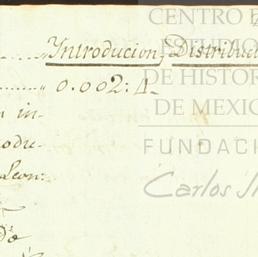 Introducion, Distribuc
0.002:4
n in-
rodu-
Leon:
CENTRO E
DE HISTOR
DE MEXIC
FUNDAC
Carlos